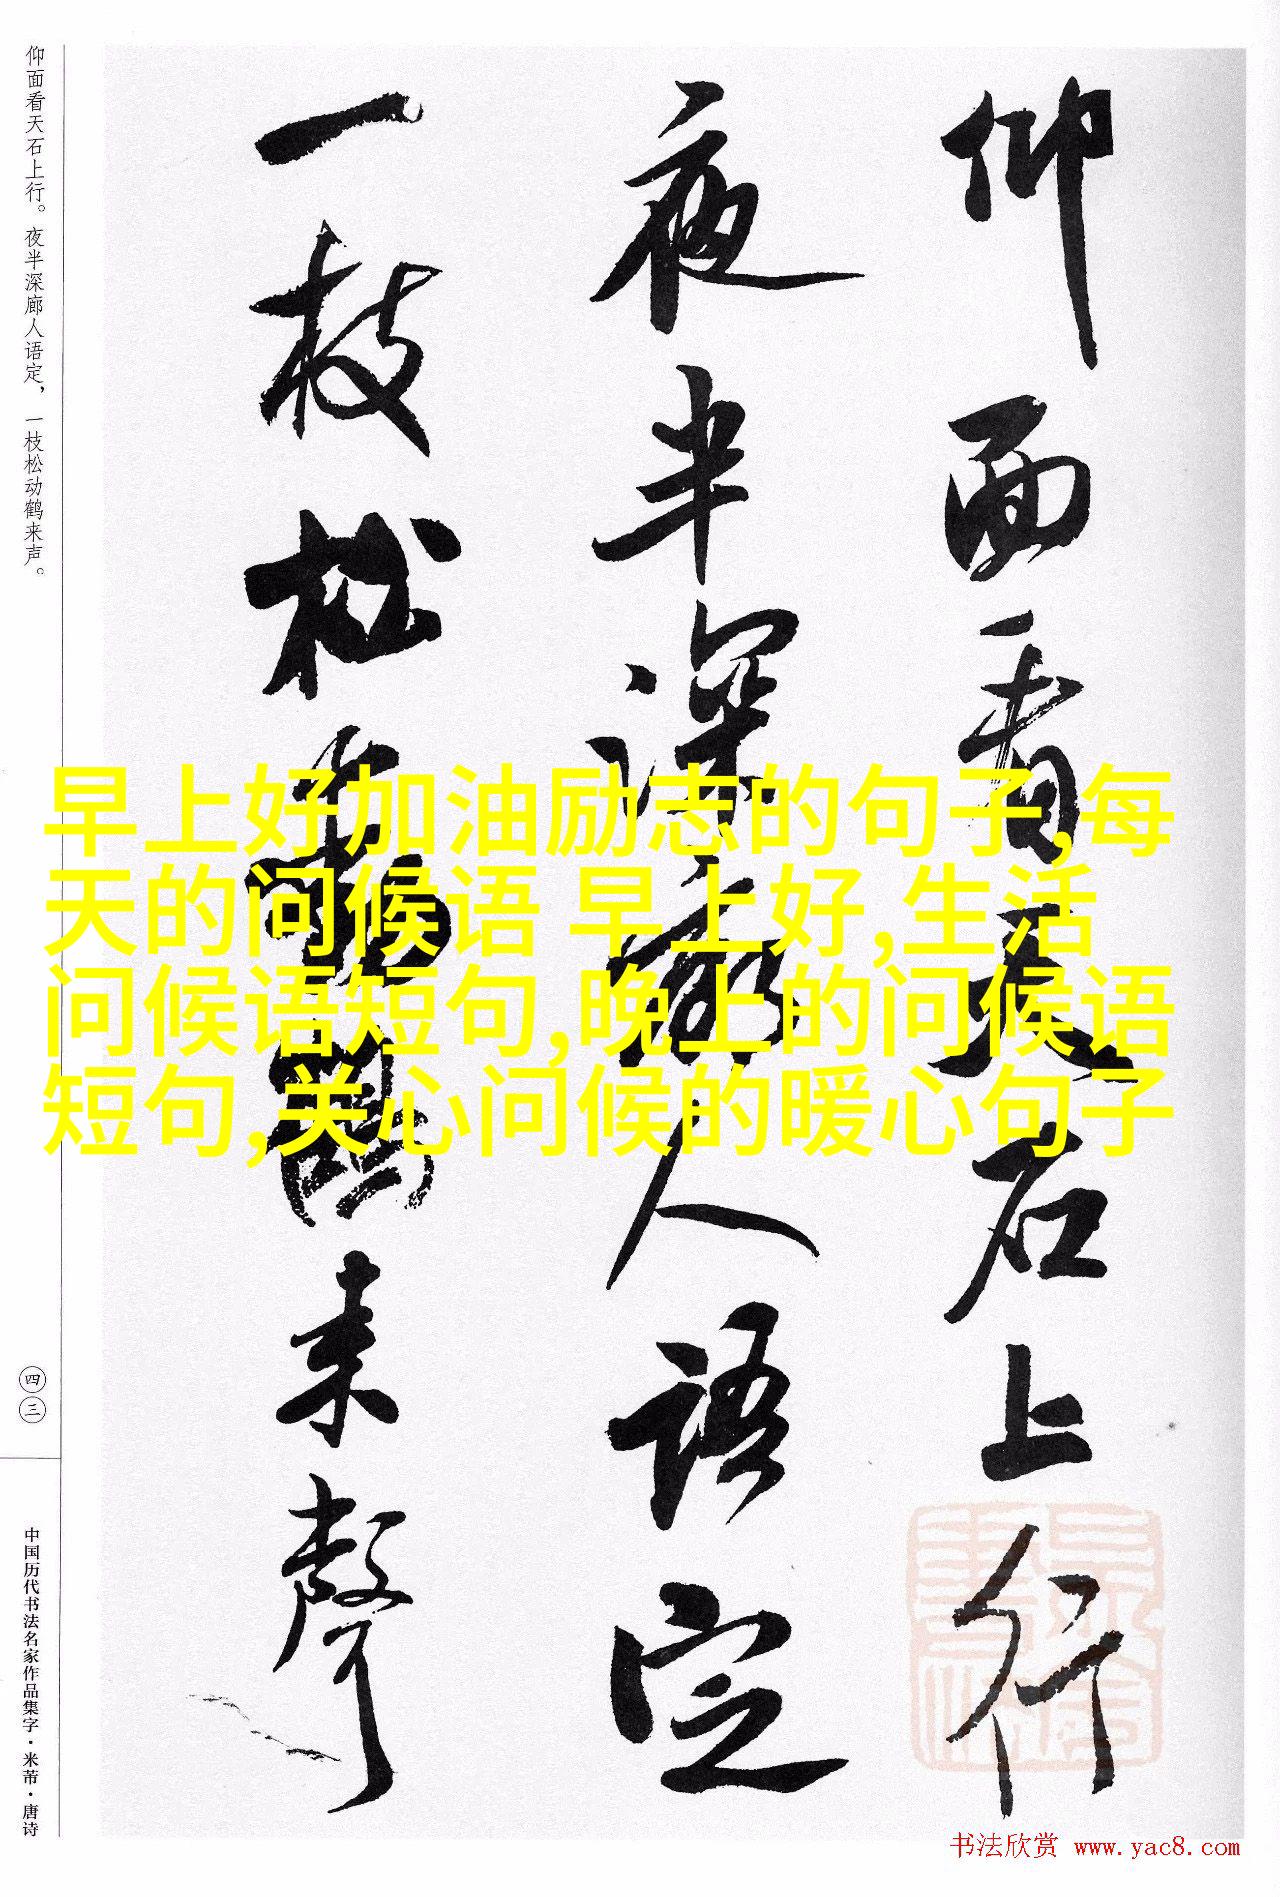 仰面看天石上行
夜半深廊人语定
一枝松动鹤来声
仰面看天石上行。夜半深廊人语定，一枝松动鹤来声。
四三
中国历代书法名家作品集字·米芾·唐诗
早上好加油励志的句子,每
天的问候语 早上好,生活
问候语短句,晚上的问候语
短句,关心问候的暖心句子
书法欣赏 www.yac8.com